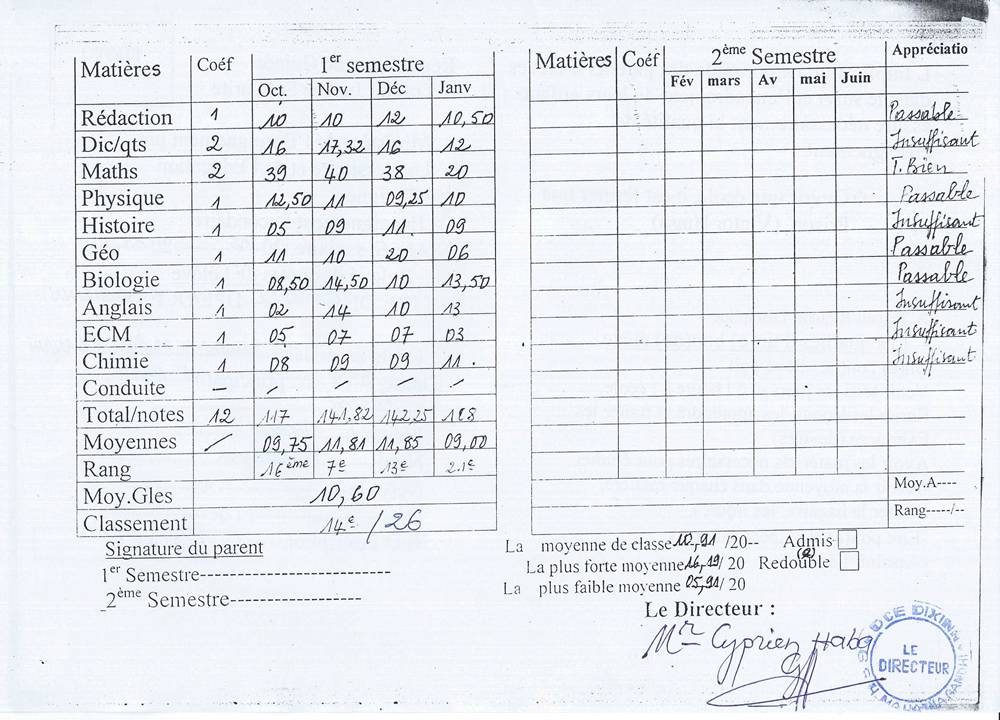 Matières Coéf 1er semestre
Oct. Nov. Déc Janv
Rédaction 1 10 10 12 10,50
Dic/qts 2 16 17,32 16 12
Maths 2 39 40 38 20
Physique 1 12,50 11 09,25 10
Histoire 1 05 09 11 09
Géo 1 11 10 20 06
Biologie 1 08,50 14,50 10 13,50
Anglais 1 02 14 10 13
ECM 1 05 07 07 03
Chimie 1 08 09 09 11
Conduite – – – – –
Total/notes 12 117 141,82 142,25 108
Moyennes / 09,75 11,81 11,85 09,00
Rang 16ème 7e 13e 21e
Moy.Gles 10,60
Classement 14e/26
Signature du parent
1er Semestre---------------------------
2ème Semestre-------------------
Matières Coéf 2ème Semestre Appréciatio
Fév mars Av mai Juin
Passable
Insuffisant
T. Bien
Passable
Insuffisant
Passable
Passable
Insuffisant
Insuffisant
Insuffisant
Moy.A----
Rang-----/--
La moyenne de classe 10,91 /20-- Admis
La plus forte moyenne 16,19/ 20 Redouble
La plus faible moyenne 05,91/ 20
Le Directeur :
Mr Cyprien Haba
DCE DIXINN
LE
DIRECTEUR